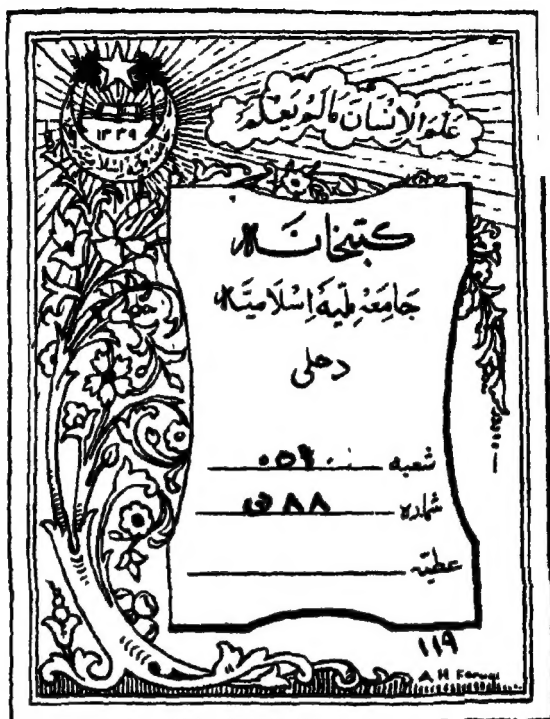 عَلَّمَ الْإِنْسَانَ مَا لَمْ يَعْلَمْ
۱۳۳۹
کتبخانہ
جَامِعَہ مِلّیَہ اِسْلَامِیَہ
دھلی
شعبہ
شمارہ ۸۸
عطیہ
۱۱۹
A H Faruqi